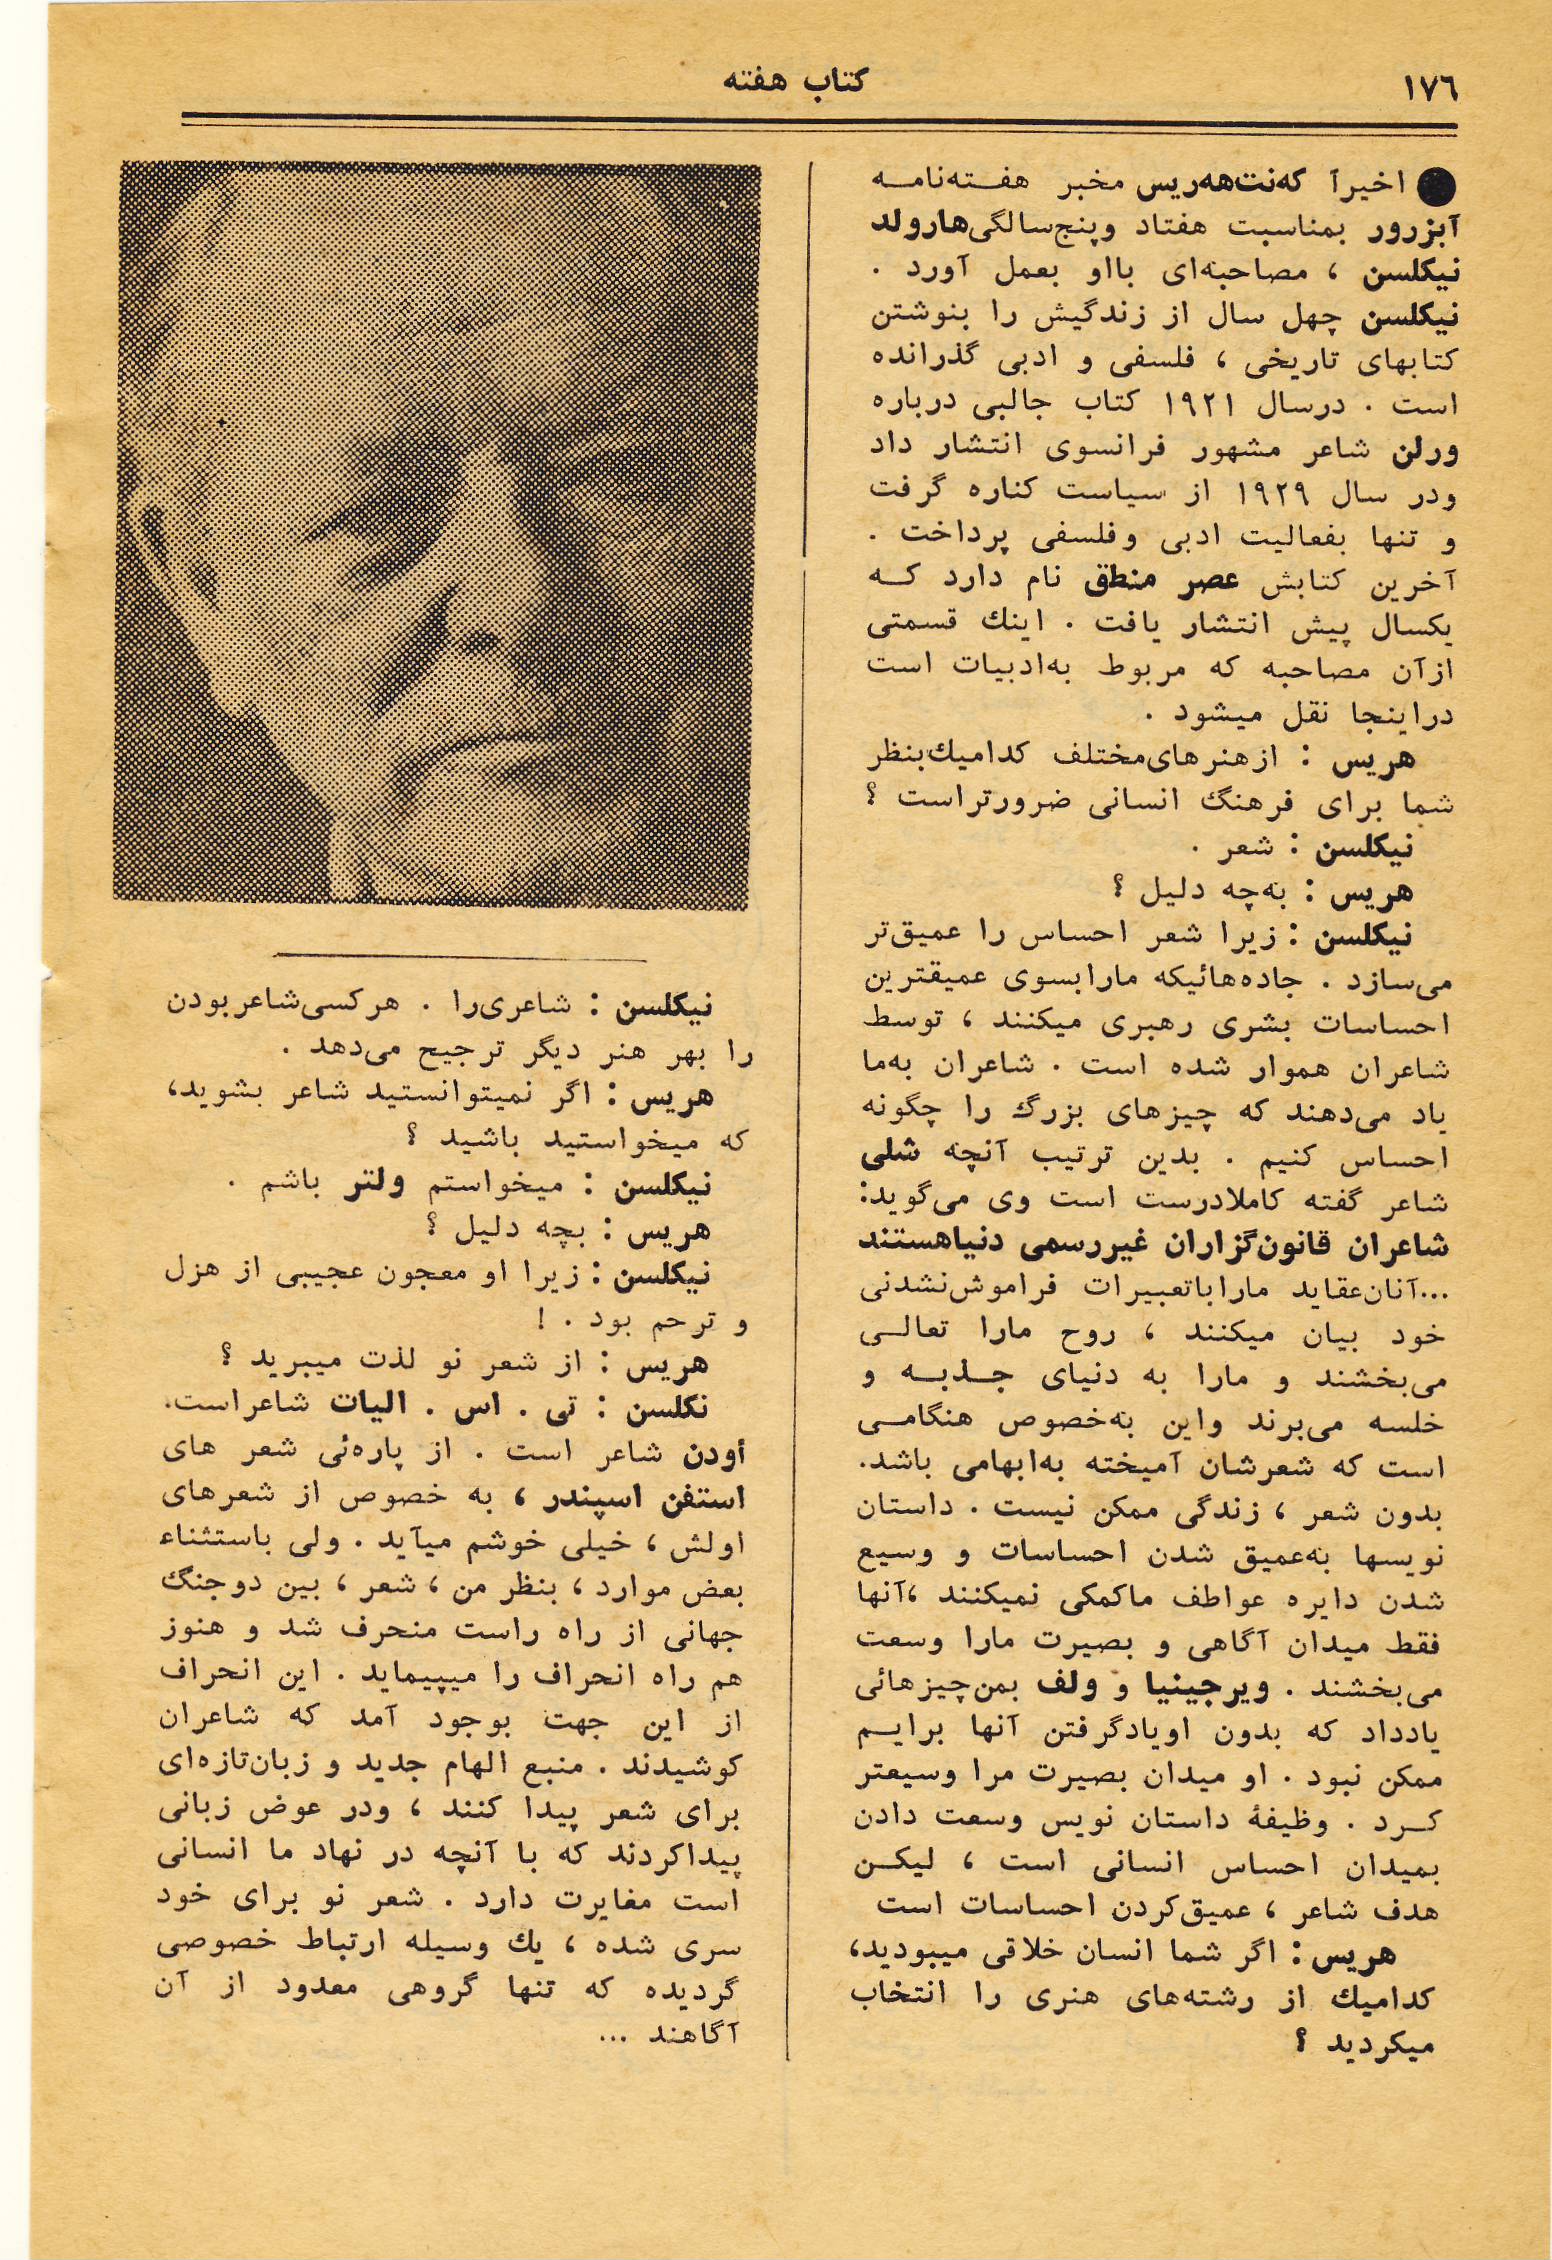 ١٧٦
کتاب هفته
● اخیرآ که‌نت‌هه‌ریس مخبر هفته‌نامه
آبزرور بمناسبت هفتاد وپنج‌سالگی‌هارولد
نیکلسن ، مصاحبه‌ای بااو بعمل آورد .
نیکلسن چهل سال از زندگیش را بنوشتن
کتابهای تاریخی ، فلسفی و ادبی گذرانده
است . درسال ۱۹۲۱ کتاب جالبی درباره
ورلن شاعر مشهور فرانسوی انتشار داد
ودر سال ۱۹۲۹ از سیاست کناره گرفت
و تنها بفعالیت ادبی وفلسفی پرداخت .
آخرین کتابش عصر منطق نام دارد که
یکسال پیش انتشار یافت . اینك قسمتی
ازآن مصاحبه که مربوط به‌ادبیات است
دراینجا نقل میشود .
هریس : ازهنرهای‌مختلف کدامیك‌بنظر
شما برای فرهنگ انسانی ضرورتراست ؟
نیکلسن : شعر .
هریس : به‌چه دلیل ؟
نیکلسن : زیرا شعر احساس را عمیق‌تر
می‌سازد . جاده‌هائیکه مارابسوی عمیقترین
احساسات بشری رهبری میکنند ، توسط
شاعران هموار شده است . شاعران به‌ما
یاد می‌دهند که چیزهای بزرگ را چگونه
احساس کنیم . بدین ترتیب آنچه شلی
شاعر گفته کاملادرست است وی می‌گوید:
شاعران قانون‌گزاران غیررسمی دنیاهستند
...آنان‌عقاید ماراباتعبیرات فراموش‌نشدنی
خود بیان میکنند ، روح مارا تعالی
می‌بخشند و مارا به دنیای جذبه و
خلسه می‌برند واین به‌خصوص هنگامی
است که شعرشان آمیخته به‌ابهامی باشد.
بدون شعر ، زندگی ممکن نیست . داستان
نویسها به‌عمیق شدن احساسات و وسیع
شدن دایره عواطف ماکمکی نمیکنند ،آنها
فقط میدان آگاهی و بصیرت مارا وسعت
می‌بخشند . ویرجینیا و ولف بمن‌چیزهائی
یادداد که بدون اویادگرفتن آنها برایم
ممکن نبود . او میدان بصیرت مرا وسیعتر
کرد . وظیفهٔ داستان نویس وسعت دادن
بمیدان احساس انسانی است ، لیکن
هدف شاعر ، عمیق‌کردن احساسات است
هریس : اگر شما انسان خلاقی میبودید،
کدامیك از رشته‌های هنری را انتخاب
میکردید ؟
نیکلسن : شاعری‌را . هرکسی‌شاعربودن
را بهر هنر دیگر ترجیح می‌دهد .
هریس : اگر نمیتوانستید شاعر بشوید،
که میخواستید باشید ؟
نیکلسن : میخواستم ولتر باشم .
هریس : بچه دلیل ؟
نیکلسن : زیرا او معجون عجیبی از هزل
و ترحم بود . !
هریس : از شعر نو لذت میبرید ؟
نکلسن : تی . اس . الیات شاعراست.
أودن شاعر است . از پاره‌ئی شعر های
استفن اسپندر ، به خصوص از شعرهای
اولش ، خیلی خوشم میآید . ولی باستثناء
بعض موارد ، بنظر من ، شعر ، بین دوجنگ
جهانی از راه راست منحرف شد و هنوز
هم راه انحراف را میپیماید . این انحراف
از این جهت بوجود آمد که شاعران
کوشیدند . منبع الهام جدید و زبان‌تازه‌ای
برای شعر پیدا کنند ، ودر عوض زبانی
پیداکردند که با آنچه در نهاد ما انسانی
است مغایرت دارد . شعر نو برای خود
سری شده ، یك وسیله ارتباط خصوصی
گردیده که تنها گروهی معدود از آن
آگاهند ...